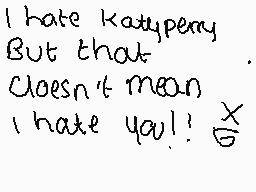 I hate Katyperry
But that
doesn't mean
i hate you!! X